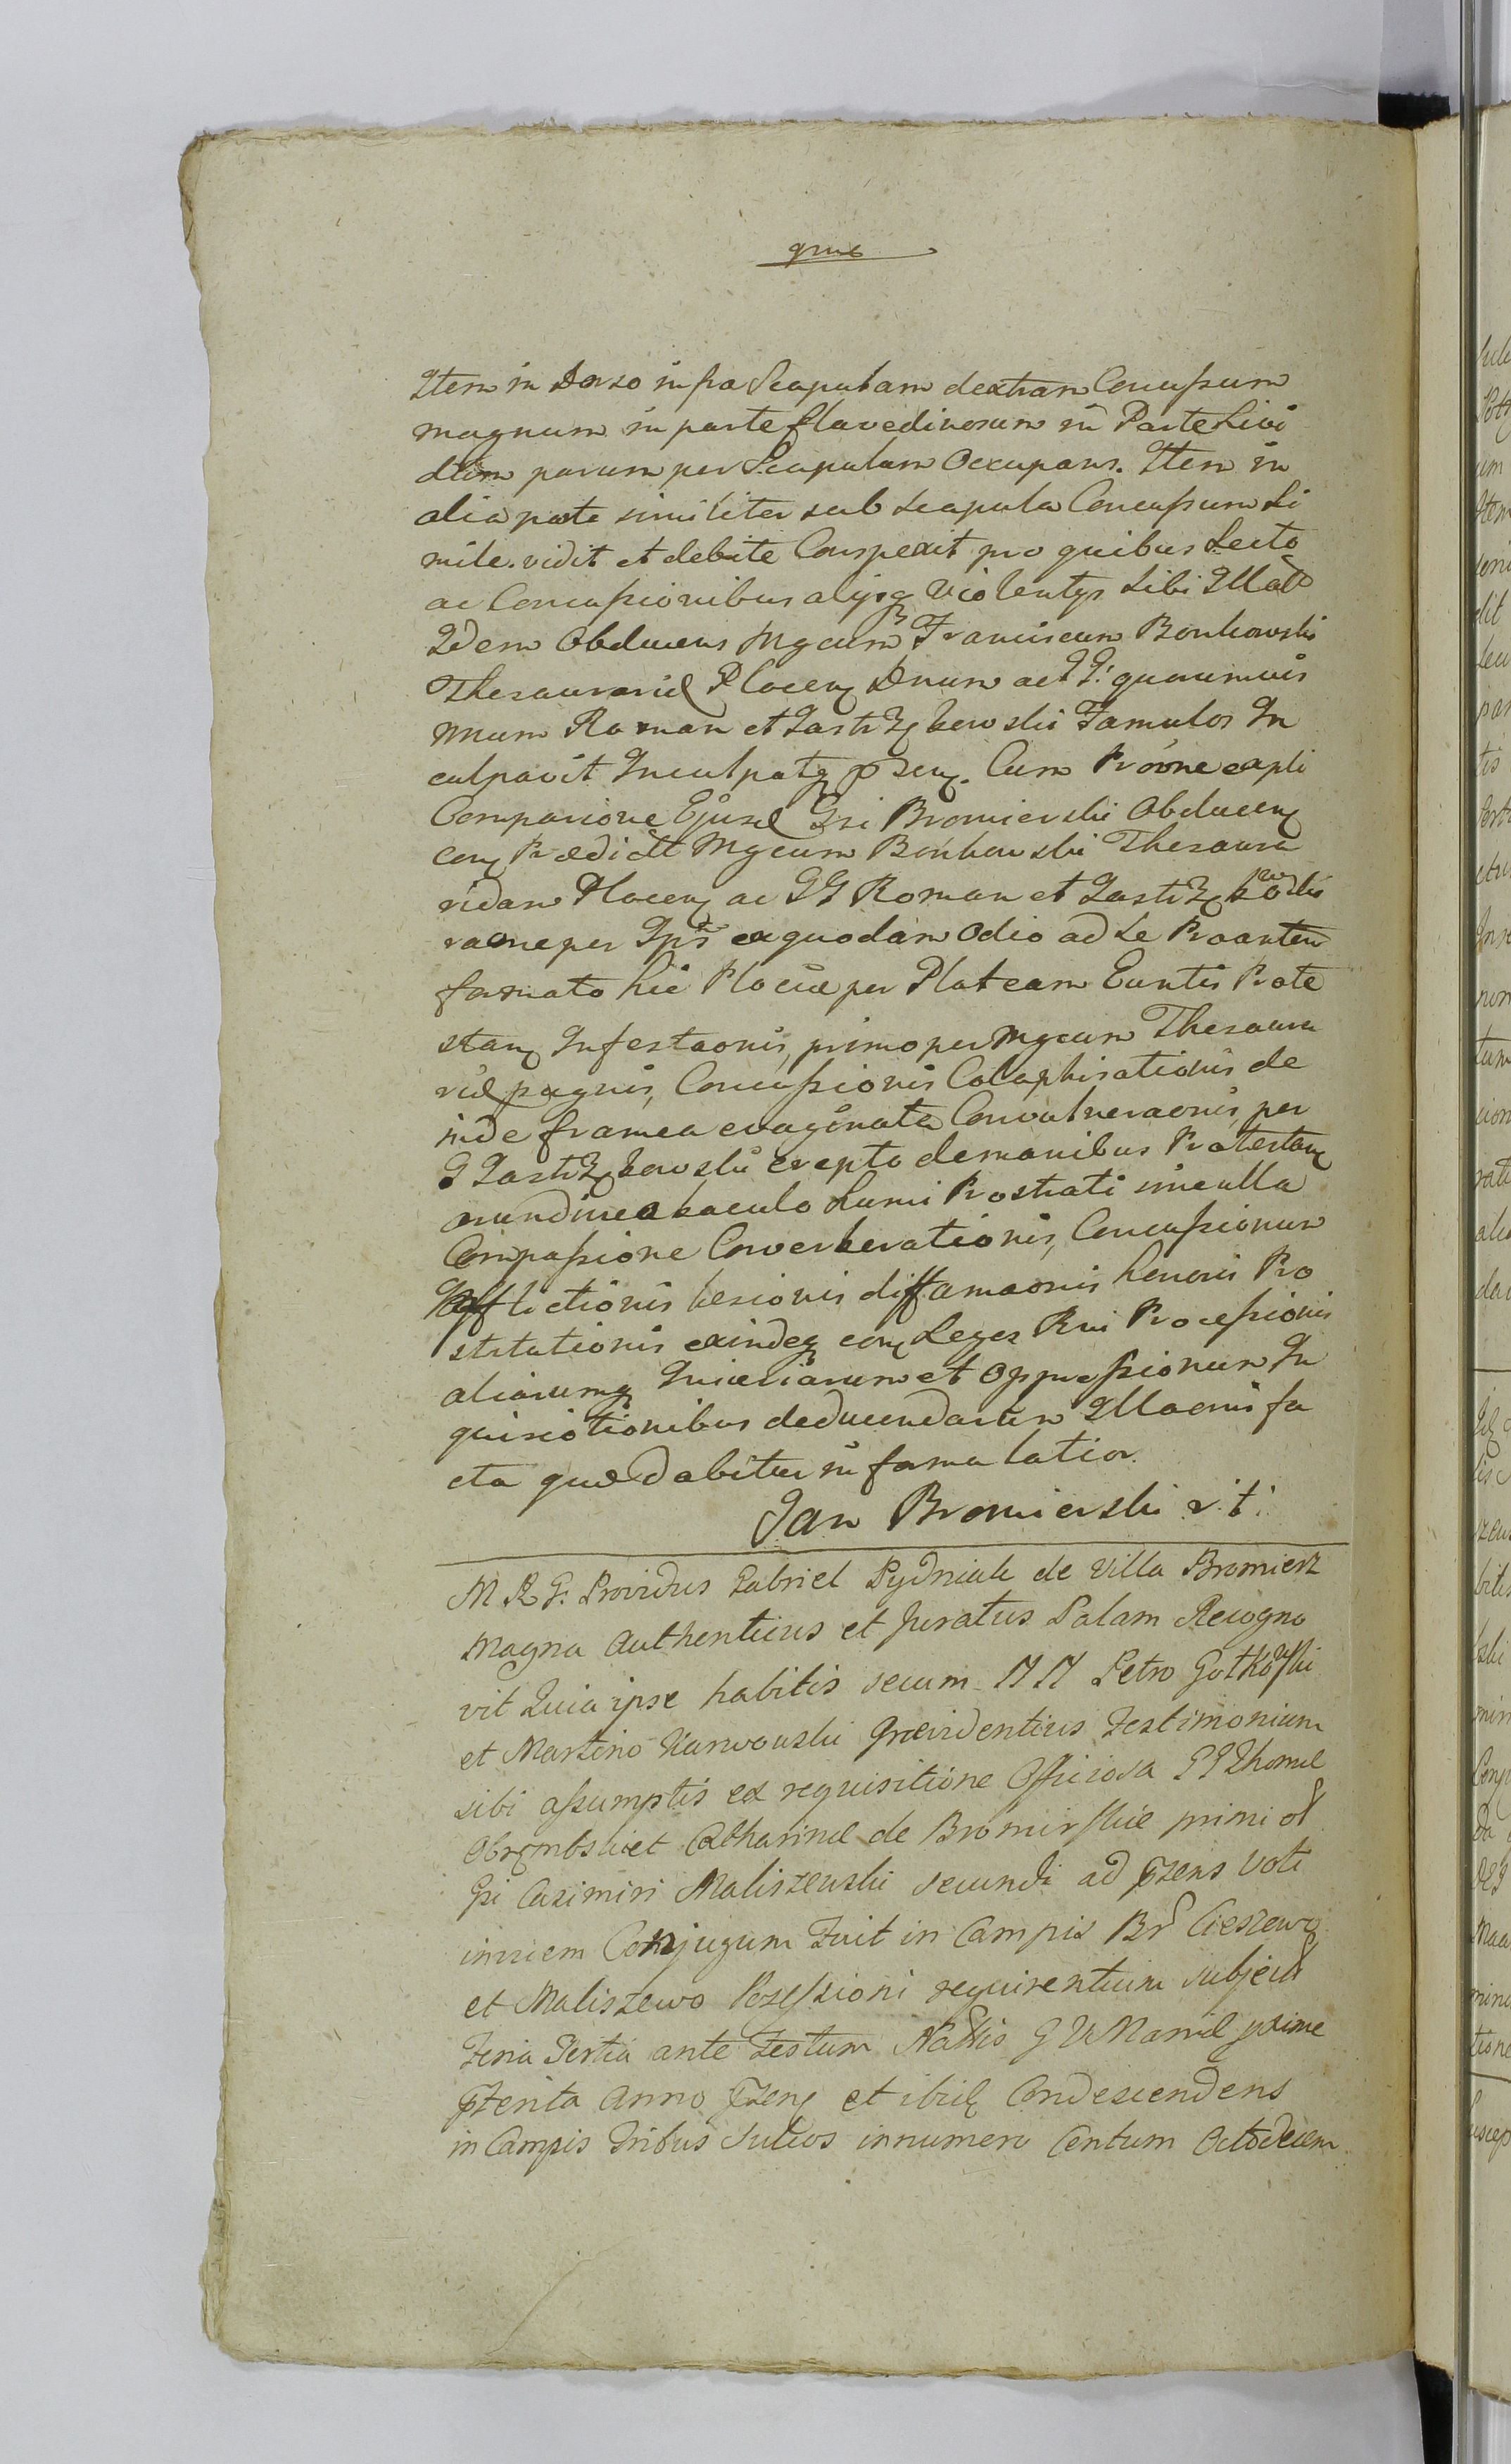 Item in Dorso infra Scapulam dextram Concussum
magnum in parte flavedinosum in Parte Livi
dum parum per Scapulam Occupans. Item in
alia parte similiter sub scapula Concussum Si
mile. vidit et debite Conspexit pro quibus Lecto
ac Concussionibus alijsq Violentys sibi Illat
Idem Obducens Mgcum Franciscum Bonkowski
Thesaurarid Plocen Dnum ac GG: quorumvis
unum Roman et Jastrzkowski Famulos In
culpavit Inculpatq Cum expli
Comparione Ejusd Gsi Bromierski Obducen
con Prædictt Mgcum Bonkowski Thesaura
ridam Plocen ac GG Roman et Jastrzkowski
raone per Ips ex quodam Odio ad se Proanten
formato hic Plociæ per Plateam Euntis Prote
stan Infestaonis, primo per Mgcum Thesaura
rid pugnis, Concussionis Colaphisationis de
inde framea evaginata Convulneraonis, per
G Jastrzkowski erepto de manibus Protestan
arundinea baculo humi Prostrati sine ulla
Compassione Converberationis, Concussionum
Afflictionis læsionis diffamaonis honoris Pro
stitutionis exindeq con Leges Rni Processionis
aliarumq Iniuriarum et Oppressionum In
quisiotionibus deducendarum Illaonis fa
cta quæ dabitur in forma latior.
Jan Bromierski r.t:
M R G: Providus Gabriel Pydniak de Villa Bromierz
Magna Authenticus et Juratus Palam Recogno
vit Quia ipse habitis secum NN Petro Gotkowski
et Martino Karwowski Grævidentius Testimonium
sibi assumptis ex requisitione Officiosa GG Thomæ
Obrembski et Catharinæ de Bromirskie primi ol
Gsi Casimiri Maliszewski secundi ad pzens Voti
invicem Conjugum Fuit in Campis Br Cieszewo
et Maliszewo Possessioni requirentium subject
Feria Tertia ante Festum Nattis G V Mariæ pxime
pterita Anno pzen et ibid Condescendens
in Campis Tribus Sulcos innumero Centum Octodecem